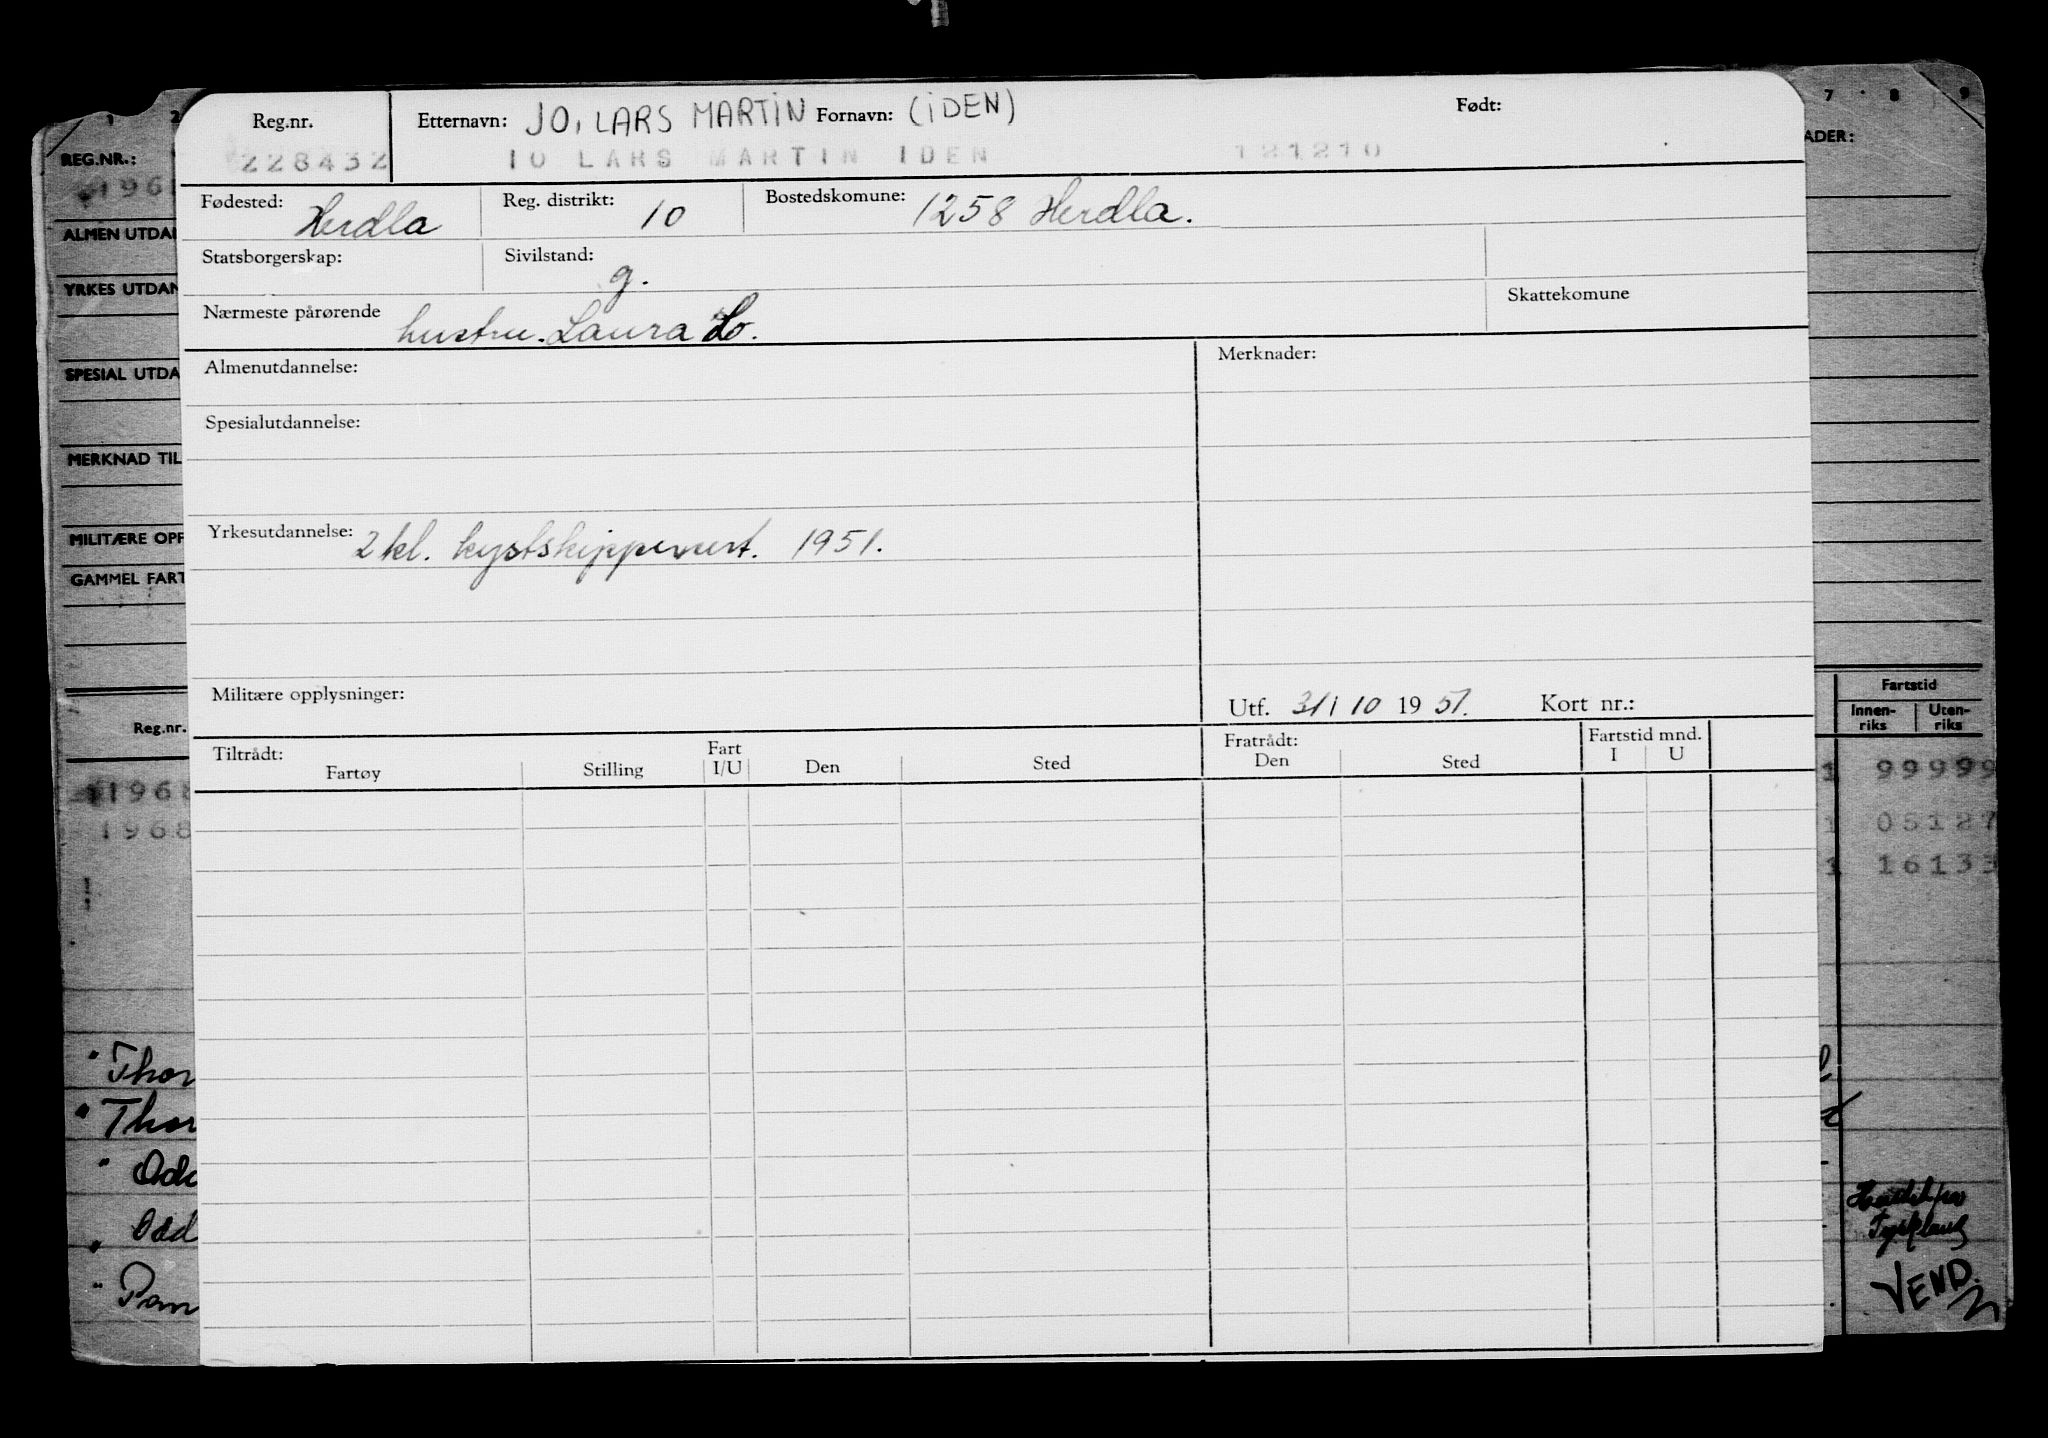 1 2 7 8 9
Reg.nr. Etternavn: JO, LARS MARTIN Fornavn: (IDEN) Født:
228432 IO LARS MARTIN IDEN 121210
REG.NR.: ADER:
Fødested: Herdla Reg. distrikt: 10 Bostedskomune: 1258 Herdla.
ALMEN UTDA
Statsborgerskap: Sivilstand: g.
YRKES UTDAN
Nærmeste pårørende hustru. Laura Skattekomune
SPESIAL UTDA
Almenutdannelse: Merknader:
Spesialutdannelse:
MERKNAD TIL
MILITÆRE OPP
Yrkesutdannelse: 2 kl. kystskippersert. 1951.
GAMMEL FART
Militære opplysninger: Utf. 31/10 1951. Kort nr.:
Reg.nr. Fartstid
Innen-riks Uten-riks
Tiltrådt: Fart Fratrådt: Fartstid mnd.
Fartøy Stilling I/U Den Sted Den Sted I U
1968 1 99999
1968 1 05127
1 16133
" Thor
" Thor
" Odd
" Odd
" Pan
VEND.